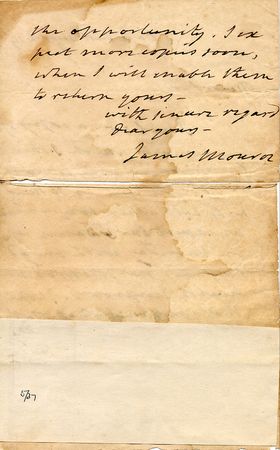 the opportunity. I ex
pect more copies soon,
when I will enable them
to return yours—
with sincere regard
dear yours—
James Monroe